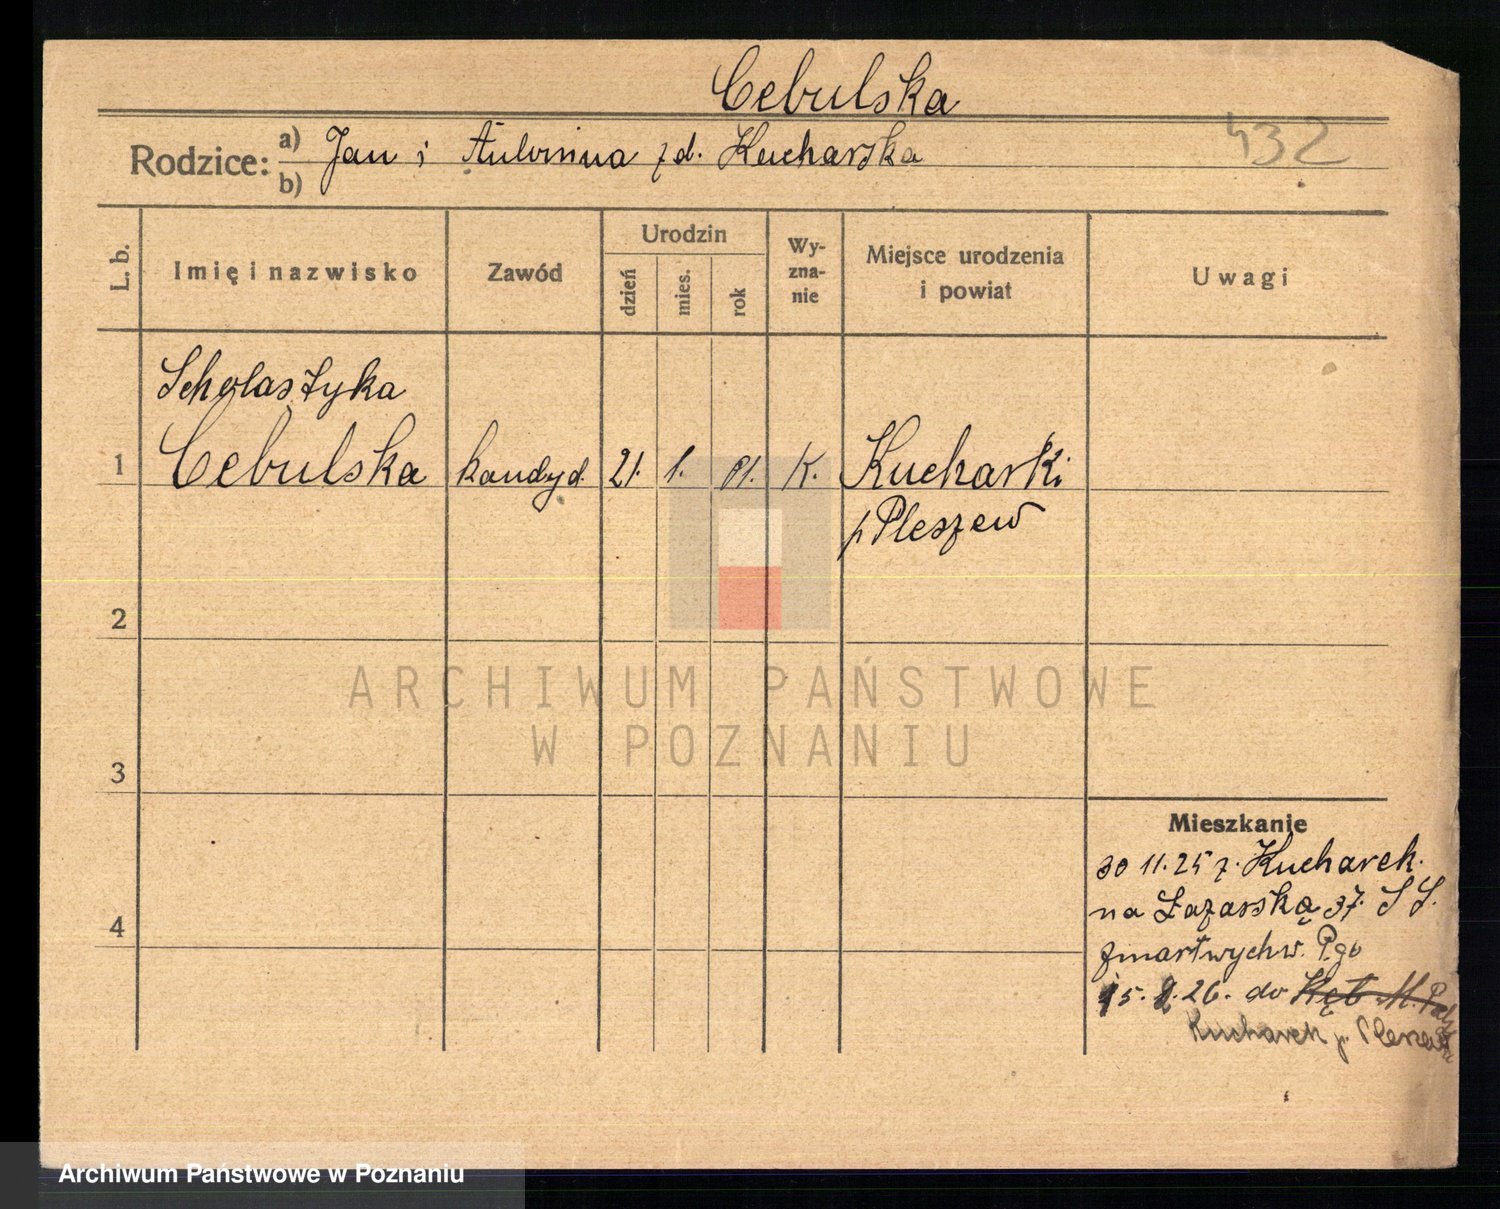 Cebulska
432
Rodzice: a) Jan i Antonina zd. Kucharska
b)
L. b.
Imię i nazwisko
Zawód
Urodzin
dzień
mies.
rok
Wy-
zna-
nie
Miejsce urodzenia
i powiat
Uwagi
Scholastyka
1 Cebulska kandyd. 21. 1. 01. K. Kucharki
p Pleszew
2
3
4
ARCHIWUM PAŃSTWOWE
W POZNANIU
Mieszkanie
30 11.25 z. Kucharek.
na Łazarską 37. S S.
zmartwychw. P.go
15. 2. 26. do Kęt M.
Kucharek p. Plesze
Archiwum Państwowe w Poznaniu